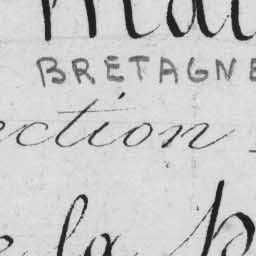 Mai
BRETAGNE
ection
e la p